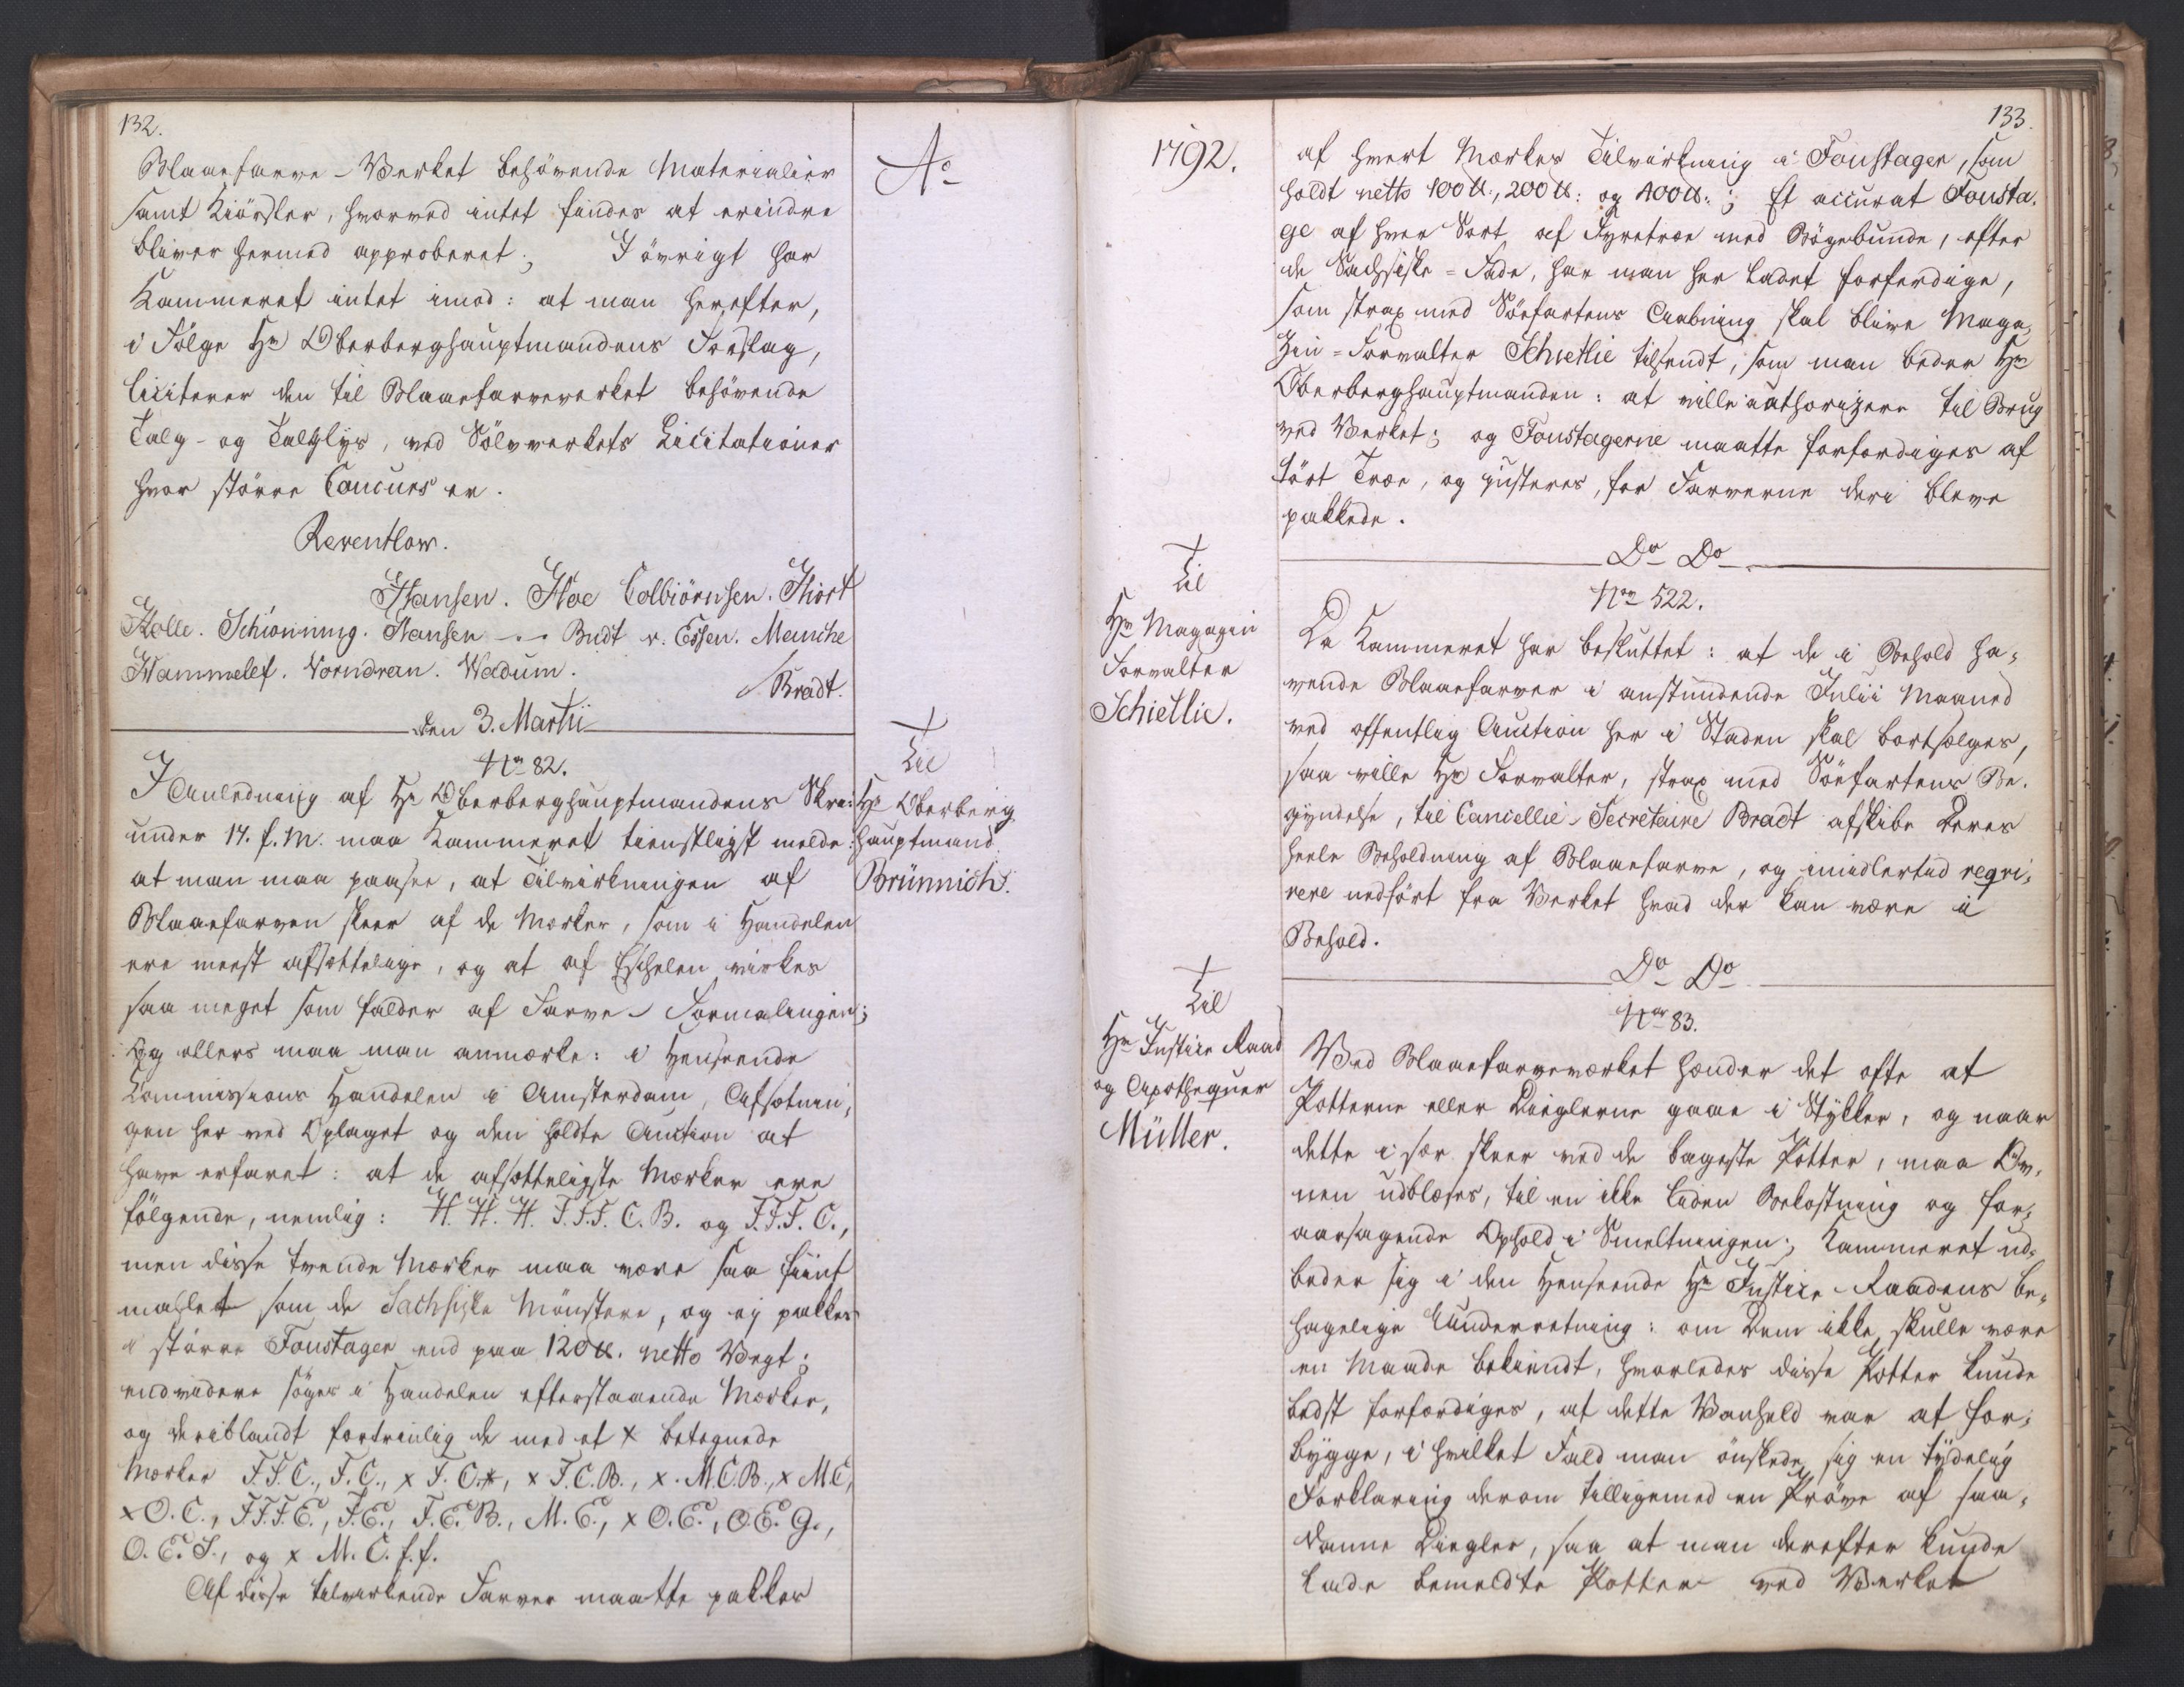 132.
Blaaefarve-Verket behövende Materialier
samt Kiörsler, hvorved intet findes at erindre
bliver hermed approberet; I övrigt har
Kammeret intet imod: at man herefter,
i Fölge Hr Oberberghauptmandens Forslag,
liciterer den til Blaaefarveverket behövende
Talg- og Talglys, ved Sölvverkets Licitationer
hvor större Concurs er.
Reventlow.
Hansen. Hoe Colbiörnsen. Hiort
Holle. Schiönning. Hansen - - Budt v. Essen. Meinche
Hammelef. Vorndran. Wadum.
/Bradt.
den 3. Martii
No 82.
I Anledning af Hr Oberberghauptmandens Skr:
under 17. f. M. maa Kammeret tienstligst melde:
at man maa paasee, at Tilvirkningen af
Blaaefarven skeer af de Mærker, som i Handelen
ere meest afsættelige, og at af Eschelen virkes
saa meget som falder af Farve-Formalingen;
Og ellers maa man anmærke: i Henseende
Commissions Handelen i Amsterdam, Afsætnin-
gen her ved Oplaget og den holdte Auction at
have erfaret: at de afsætteligste Mærker ere
fölgende, nemlig: H. H. H. F.F.F. C. B. og F.F.F. C.,
men disse trende Mærker maa være saa fiint
malet som de Sachsiske Mönstere, og ej pakkes
i större Foustager end paa 120 ℔. netto Vegt;
endvidere söges i Handelen efterstaaende Mærker,
og deriblandt fortrinlig de med et x betegnede
Mærker F.F.C., F.C., x F.C.x, x F.C.B., x. M.C.B., x M.C,
x O.C., F.F.F.E., F.E., F.E.B., M.E., x O.E., O.E.G.,
O.E.S., og x M.C.f.f.
Af disse tilvirkende Farver maatte pakkes
Ao
Til
Hr Oberberg
hauptmand
Brünnich.
1792.
133.
af hvert Mærkes Tilvirkning i Foustager, som
holdt netto 100 ℔., 200 ℔: og 400 ℔.; Et accurat Fousta-
ge af hver Sort af Fyretræe med Bögebunde, efter
de Sachsiske-Fade, har man her ladet forferdige,
som strax med Söefartens Aabning skal blive Maga-
zin-Forvalter Schietlie tilsendt, som man beder Hr
Oberberghauptmanden: at ville authorizere til Brug
ved Verket; og Foustagerne maatte forfærdiges af
tört Træe, og justeres, för Farverne deri bleve
pakkede.
Do Do
Til
Hr Magazin
Forvalter
Schietlie.
No 522.
Da Kammeret har besluttet: at de i Behold ha-
vende Blaaefarver i anstundende Julii Maaned
ved offentlig Auction her i Staden skal bortsælges,
saa ville Hr Forvalter, strax med Söefartens Be-
gyndelse, til Cancellie-Secretaire Bradt afskibe Deres
heele Beholdning af Blaaefarve, og imidlertid reqvi-
rere nedfört fra Verket hvad der kan være i
Behold.
Do Do
Til
Hr Justice Raad
og Apothequer
Müller.
No 83.
Ved Blaaefarveværket hænder det ofte at
Potterne eller Dieglerne gaae i Stykker, og naar
dette i sær skeer ved de bageste Potter, maa Ov-
nen udblæses, til en ikke liden Bekostning og for-
aarsagende Ophold i Smeltningen; Kammeret ud-
beder sig i den Henseende Hr Justice-Raadens be-
hagelige Underretning: om Dem ikke skulle være
en Maade bekiendt, hvorledes disse Potter kunde
bedst forfærdiges, at dette Vanheld var at for-
bygge, i hvilket Fald man önskede sig en tydelig
Forklaring derom tilligemed en Pröve af saa-
danne Diegler, saa at man derefter kunde
lade bemeldte Potter ved Verket